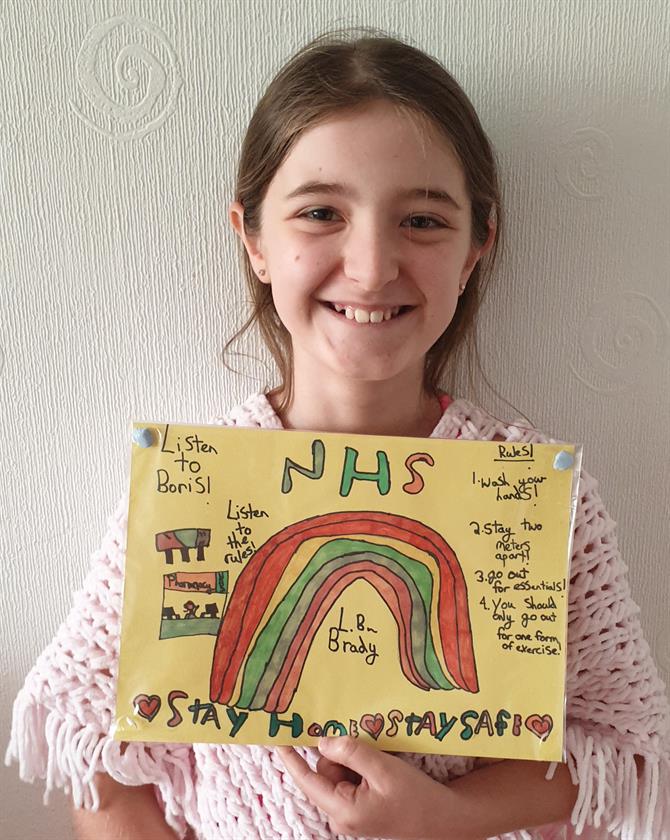 Listen
to
Boris!
NHS
Rules!
1. wash your
hands!
2. Stay two
meters
apart!
3. go out
for essentials!
4. You should
only go out
for one form
of exercise!
Listen
to
the
rules!
Pharmacy
Brady
Stay Home Stay Safe